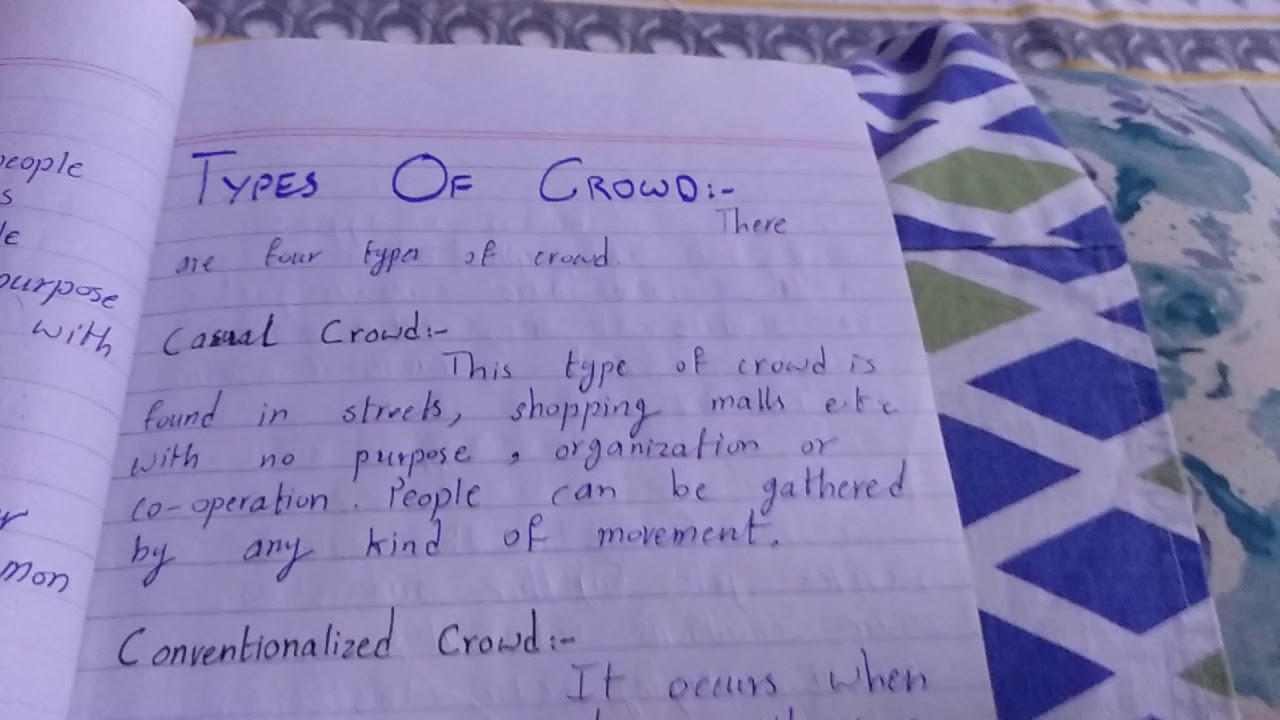 people
s
le
purpose
with
mon
TYPES OF CROWD:-
There
are four types of crowd.
Casual Crowd:-
This type of crowd is
found in streets, shopping malls etc
with no purpose, organization or
co-operation. People can be gathered
by any kind of movement.
Conventionalized Crowd:-
It occurs when